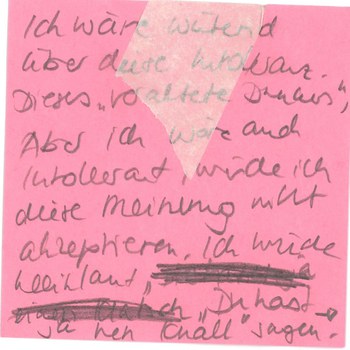 Ich wäre wütend
über diese Intoleranz.
Dieses „veraltete Denken",
Aber ich wäre auch
Intollerant, würde ich
diese Meinung nicht
akzeptieren. Ich würde
"Du hast →
ja nen Knall" sagen.